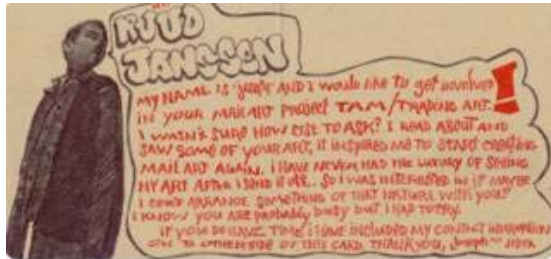 RUUD
JANSSEN
MY NAME IS JOSEPH AND I would like to get involved
in YOUR MAIL ART PROJECT TAM/TRADING ART.
I WASN'T SURE HOW ELSE TO ASK? I READ ABOUT AND
SAW SOME OF YOUR ART, IT INSPIRED ME TO START CREATING
MAIL ART AGAIN, I HAVE NEVER HAD THE LUXURY OF SEEING
MY ART AFTER I SEND IT OFF.. SO I WAS INTERESTED IN IF MAYBE
I COULD ARRANGE SOMETHING OF THAT NATURE WITH YOU?
I KNOW YOU ARE probably busy but I HAD TO TRY.
IF YOU DO HAVE TIME I HAVE INCLUDED MY CONTACT INFORMATION
ON OTHERSIDE OF THIS CARD. THANK YOU, Joseph